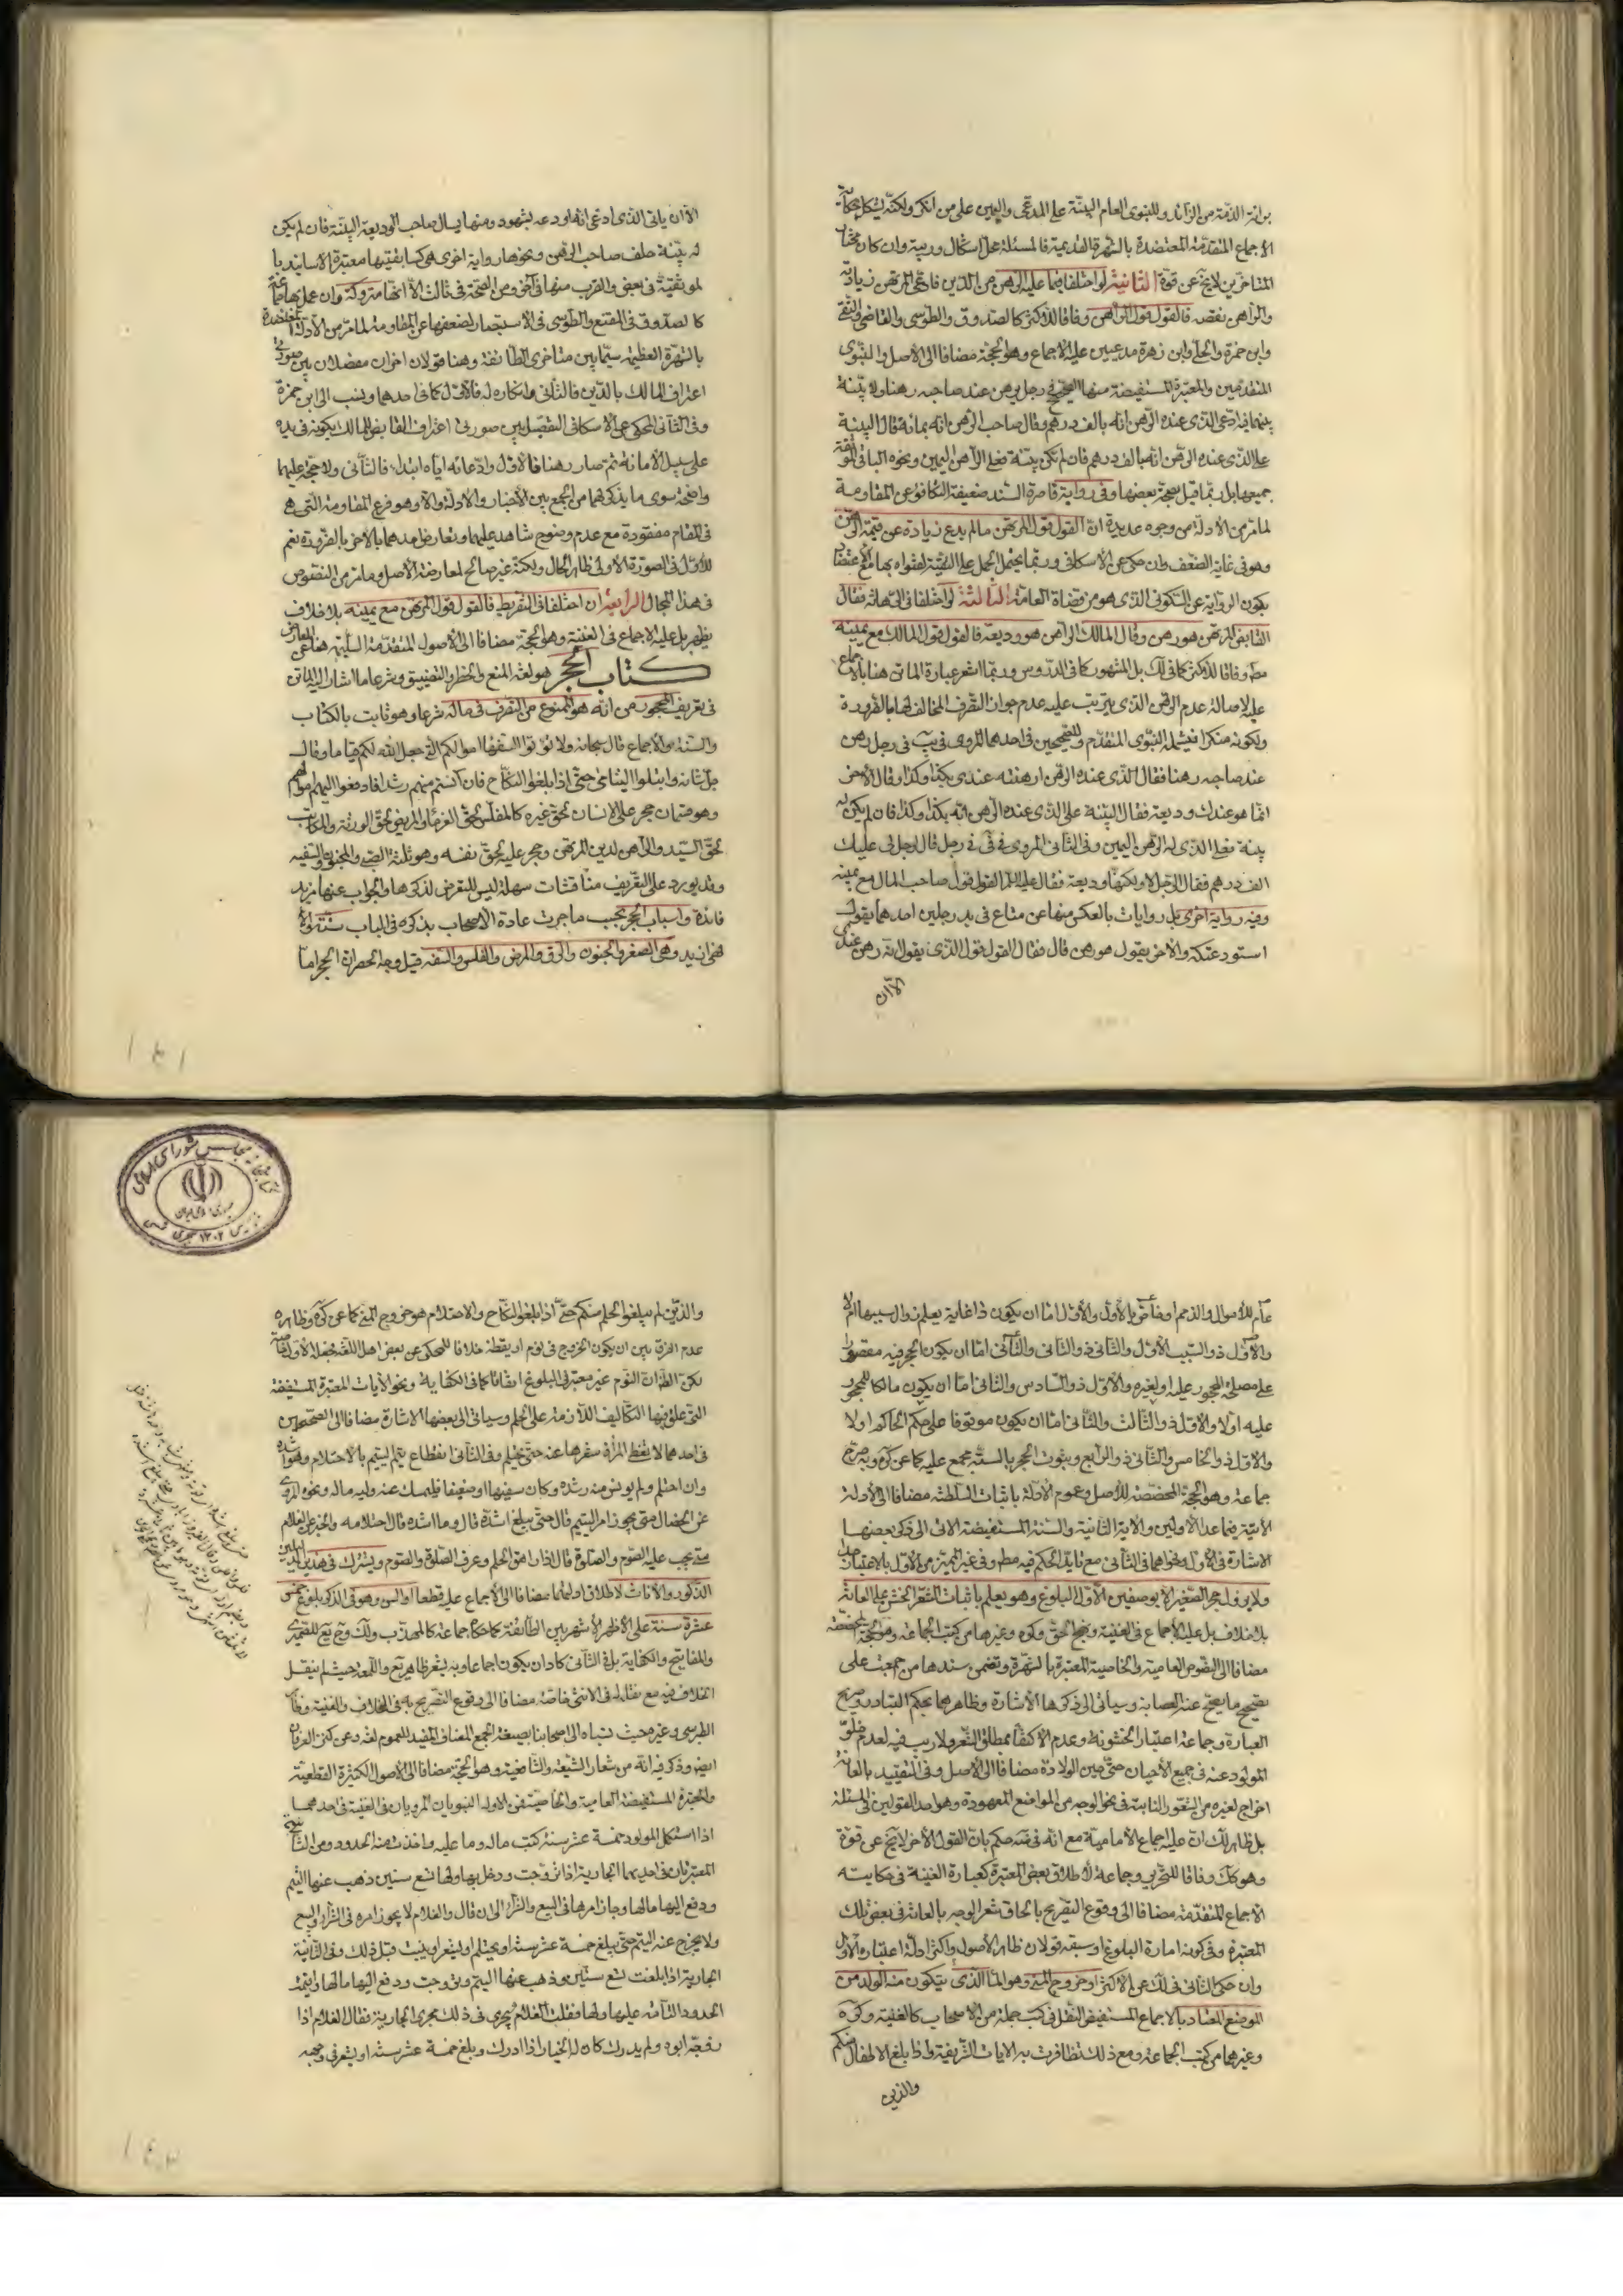 براءة الذمة من الزائد وللنبوي العام البينة على المدعي واليمين على من انكر ولكنه يشكل بحكاية
الاجماع المتقدمة المعتضدة بالشهرة القديمة فالمسئلة محل اشكال وريبة وان كان مختار
المتاخرين لا يخ عن قوة الثانية لو اختلفا فيما عليه الرهن من الدين فادعى المرتهن زيادة
والراهن نقصه فالقول قول الراهن وفاقا للاكثر كالصدوق والطوسي والقاضي والتقي
وابن حمزة والحلي وابن زهرة مدعيين عليه الاجماع وهو الحجة مضافا الى الاصل والنبوي
المتقدمين والمعتبرة المستفيضة منها الصحيح في رجل يرهن عند صاحبه رهنا ولا بينة
بينهما فادعى الذي عنده الرهن انه بالف درهم وقال صاحب الرهن انه بمائة قال البينة
على الذي عنده الرهن انه بالف درهم فان لم يكن بينة فعلى الراهن اليمين ونحوه الباقي الموثقة
جميعها بل ربما قيل بصحة بعضها وفي رواية قاصرة السند ضعيفة التكافؤ عن المقاومة
لما مر من الادلة من وجوه عديدة ان القول قول المرتهن ما لم يدع زيادة عن قيمة الرهن
وهو في غاية الضعف وان حكي عن الاسكافي وربما يحتمل الحمل على التقية لفتواه بها مع اعتضاد
بكون الرواية عن السكوني الذي هو من قضاة العامة الثالثة لو اختلفا في الرهانة فقال
القابض المرتهن هو رهن وقال المالك الراهن هو وديعة فالقول قول المالك مع يمينه
مط وفاقا للاكثر كما في لك بل المشهور كما في الدروس وربما اشعر عبارة الماتن هنا بالاجماع
عليه لاصالة عدم الرهن الذي يترتب عليه عدم جواز التصرف المخالف لها بالضرورة
ولكونه منكرا فيشمله النبوي المتقدم وللصحيحين في احدهما المروي في يب في رجل رهن
عند صاحبه رهنا فقال الذي عنده الرهن ارهنته عندي بكذا وكذا وقال الاخر
انما هو عندك وديعة فقال البينة على الذي عنده الرهن انه بكذا وكذا فان لم يكن له
بينة فعلى الذي له الرهن اليمين وفي الثاني المروي في في في رجل قال لرجل لي عليك
الف درهم فقال الرجل لا ولكنها وديعة فقال عليه السلام القول قول صاحب المال مع يمينه
وفيه رواية اخرى بل روايات بالعكس منها عن متاع في يد رجلين احدهما يقول
استودعتكه والاخر يقول هو رهن قال فقال القول قول الذي يقول انه رهن عندي
الا ان
الا ان ياتي الذي ادعى انه اودعه بشهود ومنها يسال صاحب الوديعة البينة فان لم يكن
له بينة حلف صاحب الرهن ونحوها رواية اخرى هي كسابقتيها معتبرة الاسانيد با
لموثقية في بعض والقرب منها في اخر ومن الصحة في ثالث الا انها متروكة وان عمل بها جماعة
كالصدوق في المقنع والطوسي في الاستبصار لضعفها عن المقاومة لما مر من الادلة المعتضدة
بالشهرة العظيمة سيما بين متاخري الطائفة وهنا قولان اخران مفصلان بين صورتي
اعتراف المالك بالدين فالثاني وانكاره له فالاول كما في احدهما وينسب الى ابن حمزة
وفي الثاني المحكي عن الاسكافي التفصيل بين صورتي اعتراف القابض للمالك بكونه في يده
على سبيل الامانة ثم صار رهنا فالاول وادعائه اياه ابتداء فالثاني ولا حجة عليهما
واضحة سوى ما يذكر لهما من الجمع بين الاخبار والادلة والا وهو فرع المقاومة التي هي
في المقام مفقودة مع عدم وضوح شاهد عليهما وتعارض احدهما بالاخر بالضرورة نعم
للاول في الصورة الاولى ظاهر الحال ولكنه غير صالح لمعارضة الاصل وما مر من النصوص
في هذا المجال الرابعة ان اختلفا في التفريط فالقول قول المرتهن مع يمينه بلا خلاف
يظهر بل عليه الاجماع في الغنية وهو الحجة مضافا الى الاصول المتقدمة السليمة هنا عن المعارض
كتاب الحجر هو لغة المنع والحظر والتضييق وشرعا ما اشار اليه الماتن
في تعريف المحجور من انه هو الممنوع من التصرف في ماله شرعا وهو ثابت بالكتاب
والسنة والاجماع قال سبحانه ولا تؤتوا السفهاء اموالكم التي جعل الله لكم قياما وقال
جل شانه وابتلوا اليتامى حتى اذا بلغوا النكاح فان انستم منهم رشدا فادفعوا اليهم اموالهم
وهو قسمان حجر على الانسان لحق غيره كالمفلس لحق الغرماء والمريض لحق الورثة والمكاتب
لحق السيد والراهن لدين المرتهن وحجر عليه لحق نفسه وهو ثلثة الصبي والمجنون والسفيه
وقد يورد على التعريف مناقشات سهلة ليس للتعرض لذكرها والجواب عنها مزيد
فائدة واسباب الحجر بحسب ما جرت عادة الاصحاب بذكره في الباب ستة والا
فهي ازيد وهي الصغر والجنون والرق والمرض والفلس والسفه قيل وجه الحصر ان الحجر اما
عام للاصول والذمم او خاص بالاول والاول اما ان يكون ذا غاية يعلم زوال سببها ام لا
والاول ذو السبب الاول والثاني ذو الثاني والثاني اما ان يكون الحجر فيه مقصورا
على مصلحة المحجور عليه او لغيره والاول ذو السادس والثاني اما ان يكون مالكا للمحجور
عليه اولا والاول ذو الثالث والثاني اما ان يكون موقوفا على حكم الحاكم اولا
والاول ذو الخامس والثاني ذو الرابع وثبوت الحجر بالستة مجمع عليه كما عن كره وبه صرح
جماعة وهو الحجة المخصصة للاصل وعموم الادلة باثبات السلطنة مضافا الى الادلة
الاتية فيما عدا الاولين والاية الثانية والسنة المستفيضة الاتي الى ذكر بعضها
الاشارة في الاول وفحواهما في الثاني مع تايد الحكم فيه مط وفي غير المميز من الاول بالاعتبار جدا
ولا يزول حجر الصغير الا بوصفين الاول البلوغ وهو يعلم بانبات الشعر الخشن على العانة
بلا خلاف بل عليه الاجماع في الغنية ونهج الحق وكره وغيرها من كتب الجماعة وهو الحجة المخصصة
مضافا الى النصوص العامية والخاصية المعتبرة بالشهرة وتضمن سندها من اجمعت على
تصحيح ما يصح عنه العصابة وسياتي الى ذكرها الاشارة وظاهرهما بحكم التبادر وصريح
العبارة وجماعة اعتبار الخشونة وعدم الاكتفاء بمطلق الشعر ولا ريب فيه لعدم خلو
المولود عنه في جميع الاحيان حتى حين الولادة مضافا الى الاصل وفي التقييد بالعانة
اخراج لغيره من الشعور النابتة في نحو الوجه من المواضع المعهودة وهو احد القولين في المسئلة
بل ظاهر لك ان عليه اجماع الامامية مع انه في ضه حكم بان القول الاخر لا يخ عن قوة
وهو كك وفاقا للتحرير وجماعة لاطلاق بعض المعتبرة كعبارة الغنية في حكايته
الاجماع المتقدمة مضافا الى وقوع التصريح بالحاق شعر الوجه بالعانة في بعض تلك
المعتبرة وفي كونه امارة البلوغ او سبقه قولان ظاهر الاصول واكثر ادلة اعتباره الاول
وان حكي الثاني في لك عن الاكثر او خروج المني وهو الماء الذي يتكون منه الولد من
الموضع المعتاد بالاجماع المستفيض النقل في كتب جملة من الاصحاب كالغنية وكره
وغيرهما من كتب الجماعة ومع ذلك تظافرت به الايات الشريفة واذا بلغ الاطفال منكم
والذين
والذين لم يبلغوا الحلم منكم حتى اذا بلغوا النكاح والاحتلام هو خروج المني كما عن كره وظاهره
عدم الفرق بين ان يكون الخروج في نوم او يقظة خلافا للمحكي عن بعض اهل اللغة فخصه بالاول خاصة
لكن الظ ان النوم غير معتبر في البلوغ اتفاقا كما في الكفاية ونحو الايات المعتبرة المستفيضة
التي علق فيها التكاليف اللازمة على الحلم وسياتي الى بعضها الاشارة مضافا الى الصحيحين
في احدهما لا تغطي المراة شعرها عنه حتى يحتلم وفي الثاني انقطاع يتم اليتيم بالاحتلام وهو اشده
وان احتلم ولم يونس منه رشده وكان سفيها او ضعيفا فليمسك عنه وليه ماله ونحوه المروي
عن الخصال متى يجوز امر اليتيم قال حتى يبلغ اشده قال وما اشده قال احتلامه والخبر عن الغلام
متى يجب عليه الصوم والصلوة قال اذا راهق الحلم وعرف الصلوة والصوم ويشترك في هذين الدليلين
الذكور والاناث لاطلاق ادلتهما مضافا الى الاجماع عليه قطعا او السن وهو في الذكر بلوغ خمس
عشرة سنة على الاظهر الاشهر بين الطائفة كما حكاه جماعة كالمهذب ولك وح يع للصيمري
والمفاتيح والكفاية بل في الثاني كاد ان يكون اجماعا وبه يشعر ظاهر يع واللمعة حيث لم ينقل
الخلاف فيه مع نقله له في الانثى خاصة مضافا الى وقوع التصريح به في الخلاف والغنية وفاقا
الطبرسي وغيره حيث نسباه الى اصحابنا بصيغة الجمع المضاف المفيد للعموم لغة وعن كنز العرفان
ايض وذكر فيه انه من شعار الشيعة والشافعية وهو الحجة مضافا الى الاصول الكثيرة القطعية
والمعتبرة المستفيضة العامية والخاصية فمن الاولة النبويان المرويان في الغنية في احدهما
اذا استكمل المولود خمسة عشر سنة كتب ماله وما عليه واخذت منه الحدود ومن الثانية الصحيح
المعتبران في احديهما الجارية اذا تزوجت ودخل بها ولها تسع سنين ذهب عنها اليتم
ودفع اليها مالها وجاز امرها في البيع والشراء الى ان قال والغلام لا يجوز امره في الشراء والبيع
ولا يخرج عنه اليتم حتى يبلغ خمسة عشر سنة او يحتلم او يشعر او ينبت قبل ذلك وفي الثانية
الجارية اذا بلغت تسع سنين وذهب عنها اليتم وتزوجت ودفع اليها مالها واقيمت
الحدود التامة عليها ولها فقلت الغلام يجري في ذلك مجرى الجارية فقال الغلام اذا
زوجه ابوه ولم يدرك كان له الخيار اذا ادرك وبلغ خمسة عشر سنة او يشعر في وجهه